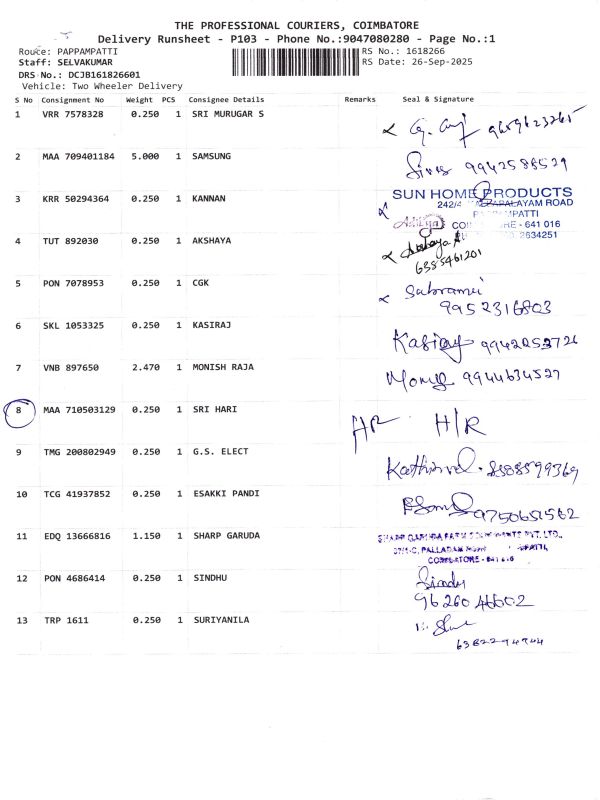 THE PROFESSIONAL COURIERS, COIMBATORE
Delivery Runsheet - P103 - Phone No.:9047080280 - Page No.:1
Route: PAPPAMPATTI RS No.: 1618266
Staff: SELVAKUMAR RS Date: 26-Sep-2025
DRS No.: DCJB161826601
Vehicle: Two Wheeler Delivery
S No Consignment No Weight PCS Consignee Details Remarks Seal & Signature
1 VRR 7578328 0.250 1 SRI MURUGAR S
2 MAA 709401184 5.000 1 SAMSUNG
Siva 9942588529
3 KRR 50294364 0.250 1 KANNAN
SUN HOME PRODUCTS
242/4 PAPALAYAM ROAD
PAPPAMPATTI
COIMBATORE - 641 016
2634251
4 TUT 892030 0.250 1 AKSHAYA
Akshaya
6385461201
5 PON 7078953 0.250 1 CGK
9952316803
6 SKL 1053325 0.250 1 KASIRAJ
Kasiraj 9942053726
7 VNB 897650 2.470 1 MONISH RAJA
9944634527
8 MAA 710503129 0.250 1 SRI HARI
H/R
9 TMG 200802949 0.250 1 G.S. ELECT
Kathirvel. 8508599369
10 TCG 41937852 0.250 1 ESAKKI PANDI
9750651562
11 EDQ 13666816 1.150 1 SHARP GARUDA
SHARP GARUDA FARM PVT. LTD.,
PALLADAM
COIMBATORE
12 PON 4686414 0.250 1 SINDHU
Sindhu
9626046602
13 TRP 1611 0.250 1 SURIYANILA
6382294944